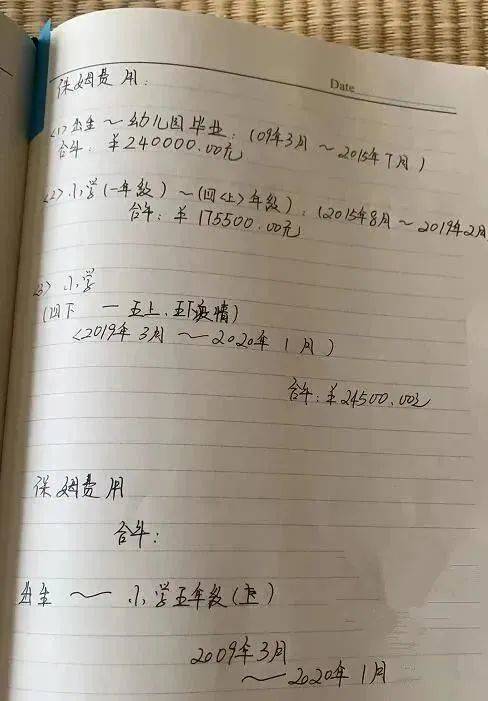 Date
保姆费用:
<1>出生~幼儿园毕业:(09年3月~2015年7月)
合计:¥240000.00元
<2>小学(一年级)~(四<上>年级):(2015年8月~2019年2月
合计:¥175500.00元
<3>小学
(四下一五上、五下疫情)
<2019年3月~2020年1月)
合计:¥24500.00元
保姆费用
合计:
出生~小学五年级(上)
2009年3月
~2020年1月